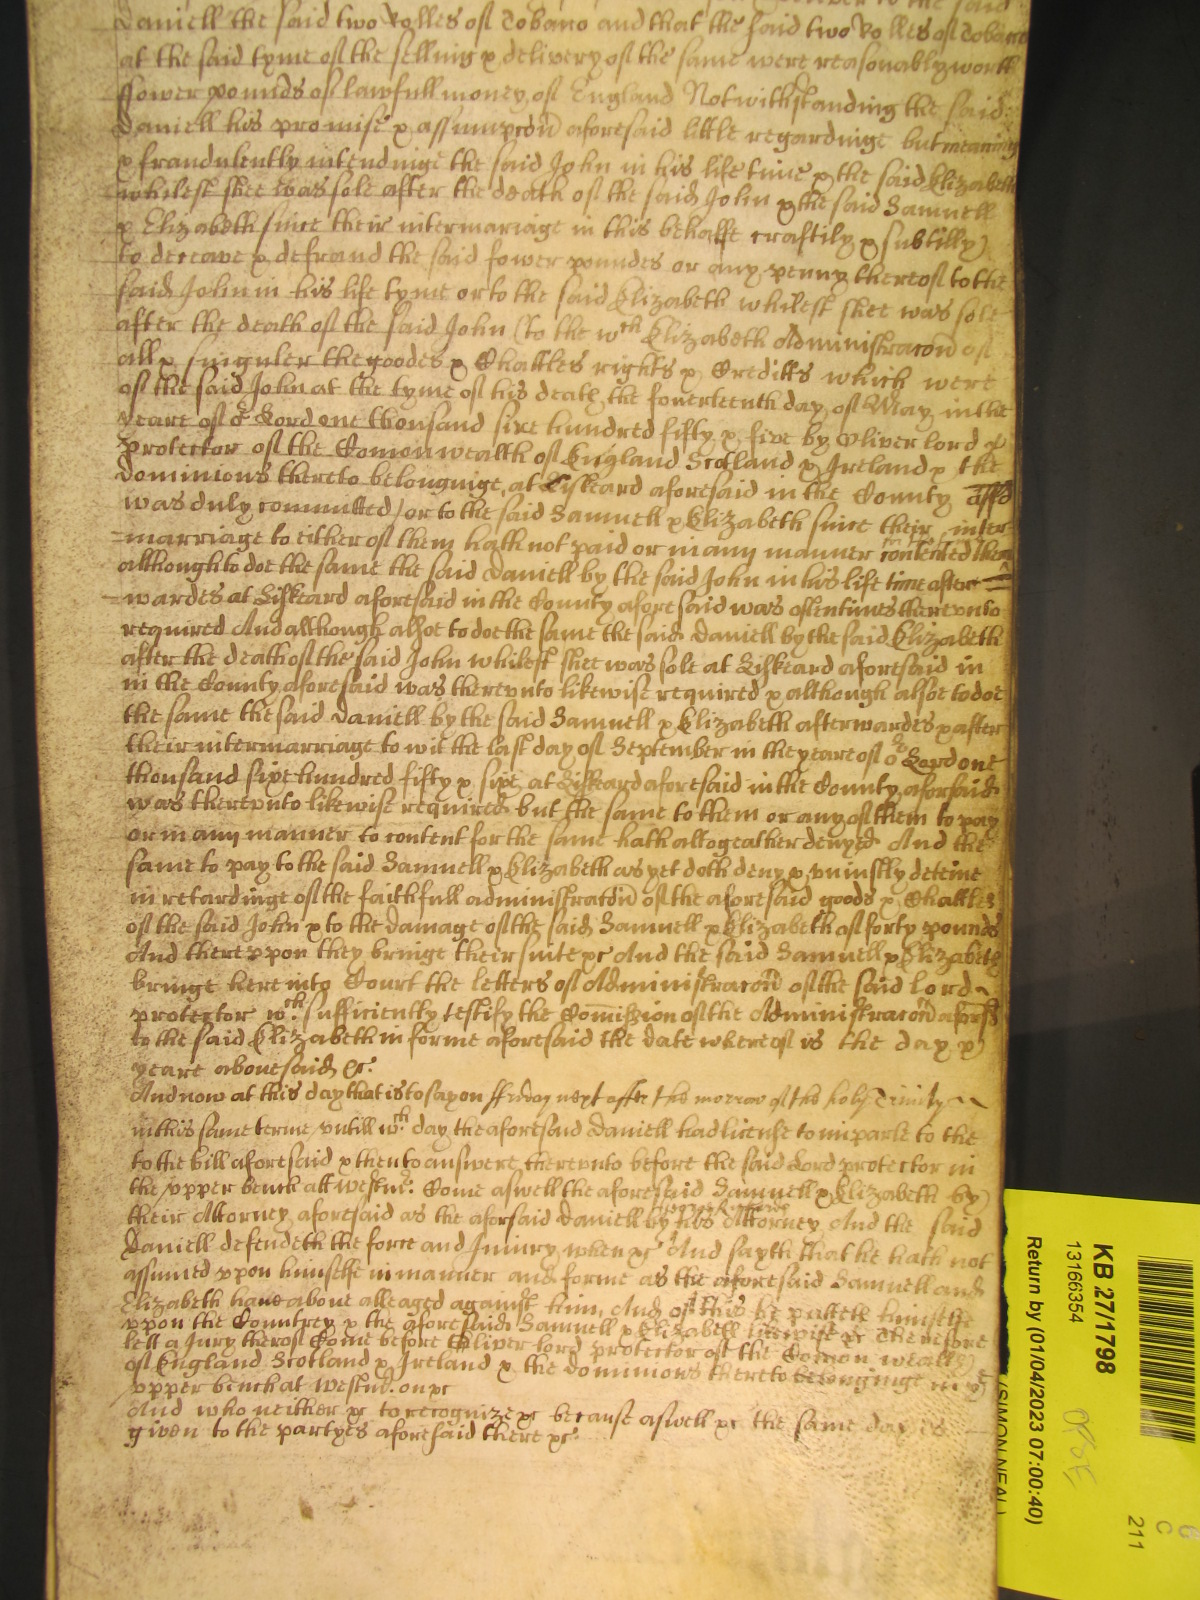 to the said
Daniell the said two Rolles of Tobacco and that the said two Rolles of Tobacco
at the said tyme of the selling & delivery of the same were reasonably worth
ffower pounds of lawfull money of England Notwithstanding the said
Daniell his promise & assumpcōn aforesaid little regardinge but meaning
& fraudulently intendinge the said John in his life time & the said Elizabeth
whilest shee was sole after the death of the said John & the said Samuell
& Elizabeth since their intermariage in this behalfe craftily & subtilly
to deceave & defraud the said fower poundes or any penny thereof to the
said John in his life tyme or to the said Elizabeth whilest shee was sole
after the death of the said John (to the wch Elizabeth Administracōn of
all & singuler the goodes & Chattles rights & Creditts which were
of the said John at the tyme of his death the fowerteenth day of May in the
yeare of or Lord one thousand sixe hundred fifty & five by Oliver lord
protector of the Comonwealth of England Scotland & Ireland & the
dominions thereto belonginge at Liskeard aforesaid in the County affd
was duly committed) or to the said Samuell & Elizabeth since their inter
=marriage to either of them hath not paid or in any manner contented them
although to doe the same the said Daniell by the said John in his life time after =
=wardes at Liskeard aforesaid in the County aforesaid was oftentimes therevnto
required And although alsoe to doe the same the said Daniell by the said Elizabeth
after the death of the said John whilest shee was sole at Liskeard aforesaid in
in the County aforesaid was therevnto likewise required & although alsoe to doe
the same the said Daniell by the said Samuell & Elizabeth afterwardes & after
their intermarriage to wit the last day of September in the yeare of or Lord one
thousand sixe hundred fifty & sixe at Liskeard aforesaid in the County aforsaid
was therevnto likewise required but the same to them or any of them to pay
or in any manner to content for the same hath altogeather denyed And the
same to pay to the said Samuell & Elizabeth as yet doth deny & vniustly deteine
in retardinge of the faithfull administracōn of the aforesaid goods & Chattles
of the said John & to the damage of the said Samuell & Elizabeth of forty pounds
And there vpon they bringe their suite &c And the said Samuell & Elizabeth
bringe here into Court the letters of Administracōn of the said lord
protector wch sufficiently testify the Comission of the Administracōn aforsd
to the said Elizabeth in forme aforesaid the date whereof is the day &
yeare abovesaid &c.
And now at this day that is to say on ffriday next after the morrow of the holy Trinity
in this same terme vntill wch day the aforesaid Daniell had license to imparle to the
to the bill aforesaid & then to answere therevnto before the said Lord protector in
the vpper bench att Westmr. Come aswell the aforesaid Samuell & Elizabeth by
their Attorney aforesaid as the aforsaid Daniell by his Attorney And the said
Daniell defendeth the force and Iniury when &c And sayth that he hath not
assumed vpon himselfe in manner and forme as the aforesaid Samuell and
Elizabeth have above alleaged against him And of this he putteth himselfe
vpon the Countrey & the aforesaid Samuell & Elizabeth likewise &c Therefore
lett a Iury therof Come before Oliver lord protector of the Comon wealth
of England Scotland & Ireland & the dominions thereto belonginge in ye
vpper bench at Westmr. on &c
And who neither &c to recognize &c because aswell &c the same day is
given to the partyes aforesaid there &c.
KB 27/1798
13166354
Return by (01/04/2023 07:00:40)
(SIMON NEAL)
211